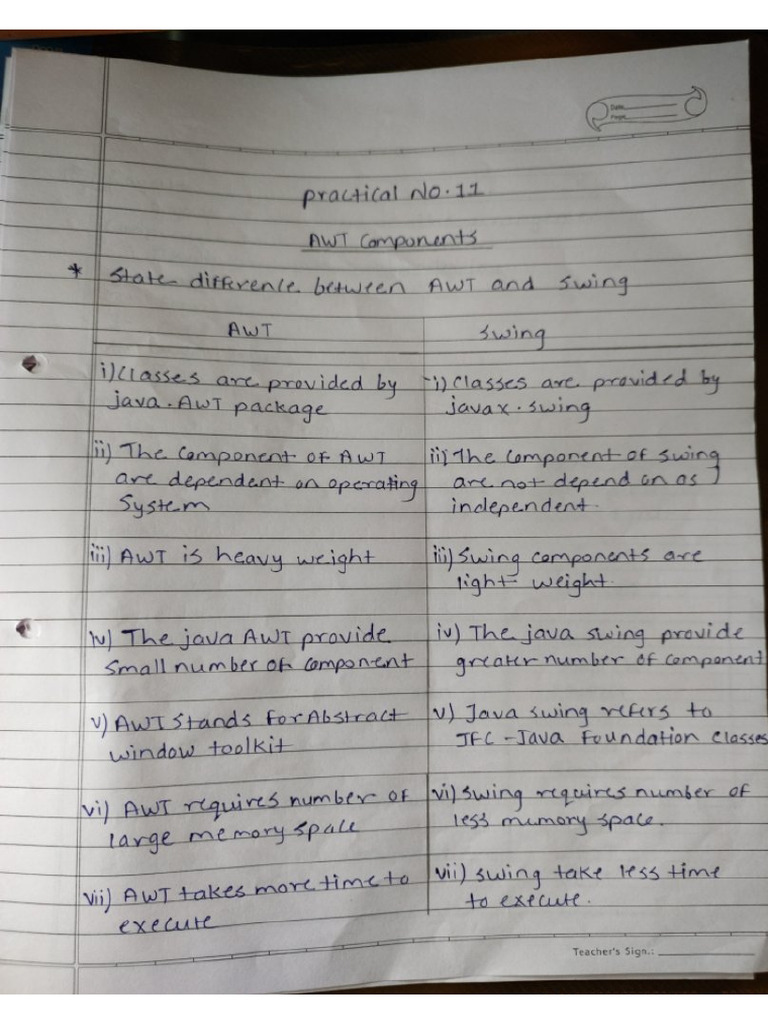 Date
Page
Practical No. 11
AWT Components
* State difference between AWT and Swing
AWT
Swing
i) Classes are provided by
java.AWT package
i) Classes are provided by
javax.swing
ii) The component of AWT
are dependent on operating
System
ii) The component of swing
are not depend on os
independent.
iii) AWT is heavy weight
iii) Swing components are
light weight.
iv) The java AWT provide
small number of component
iv) The java swing provide
greater number of component
v) AWT stands for Abstract
window toolkit
v) Java swing refers to
JFC - Java Foundation classes
vi) AWT requires number of
large memory space
vi) swing requires number of
less memory space.
vii) AWT takes more time to
execute
vii) swing take less time
to execute.
Teacher's Sign.: